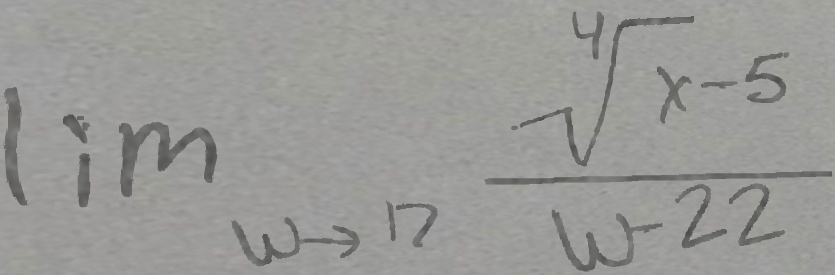 lim_{w→17} \frac{\sqrt[4]{x-5}}{w-22}